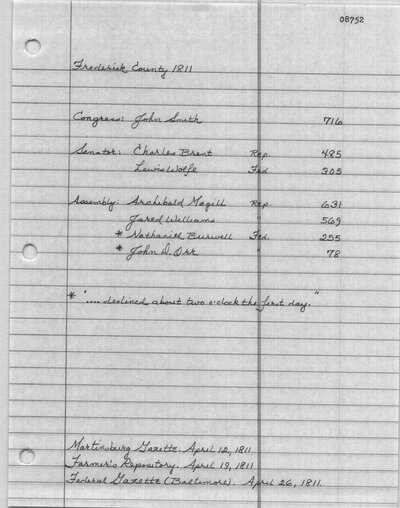 08752
Frederick County 1811
Congress: John Smith 716
Senator: Charles Brent Rep. 485
Lewis Wolfe Fed 305
Assembly: Archibald Magill Rep. 631
Jared Williams " 569
* Nathaniel Burwell Fed. 255
* John D. Orr " 78
* ".... declined about two o'clock the first day."
Martinsburg Gazette. April 12, 1811.
Farmer's Repository. April 19, 1811
Federal Gazette (Baltimore). April 26, 1811.